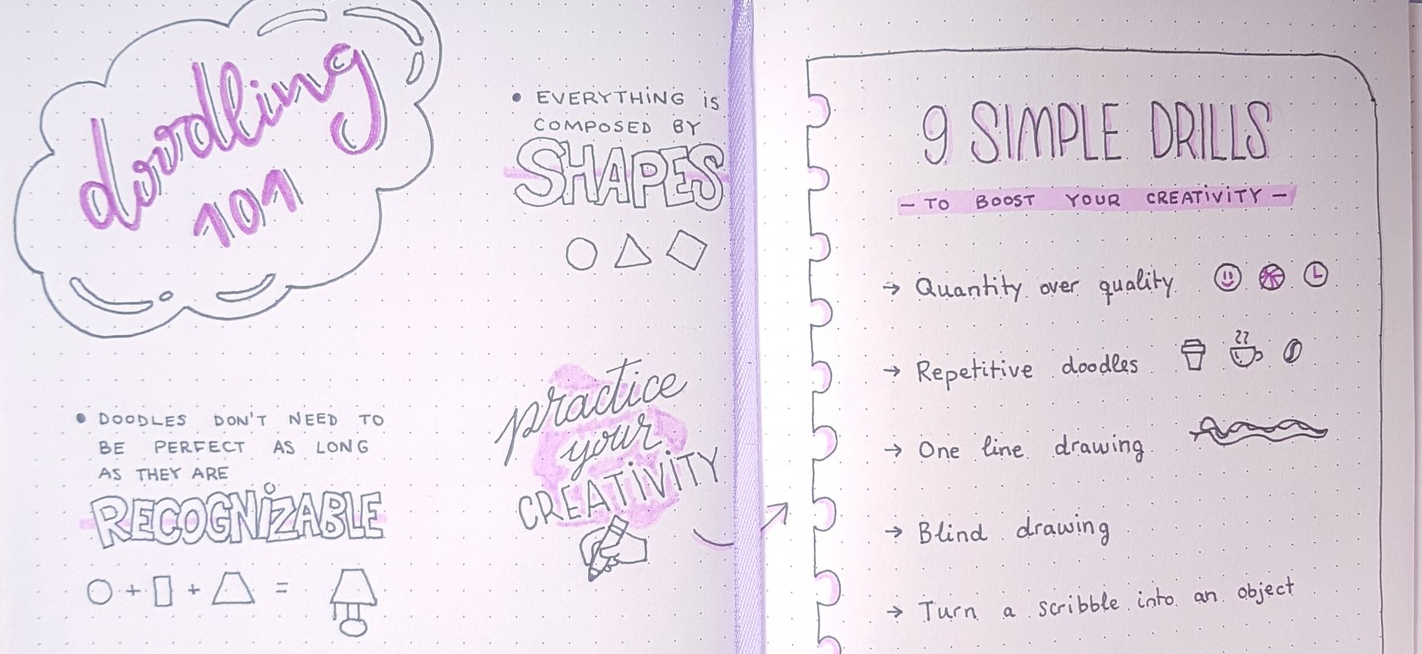 doodling
101
• EVERYTHING iS
COMPOSED BY
SHAPES
• DOODLES DON'T NEED TO
BE PERFECT AS LONG
AS THEY ARE
RECOGNiZABLE
+ + =
practice
your
CREATiViTY
9 SIMPLE DRILLS
- TO BOOST YOUR CREATiViTY -
→ Quantity over quality
→ Repetitive doodles
→ One line drawing
→ Blind drawing
→ Turn a scribble into an object